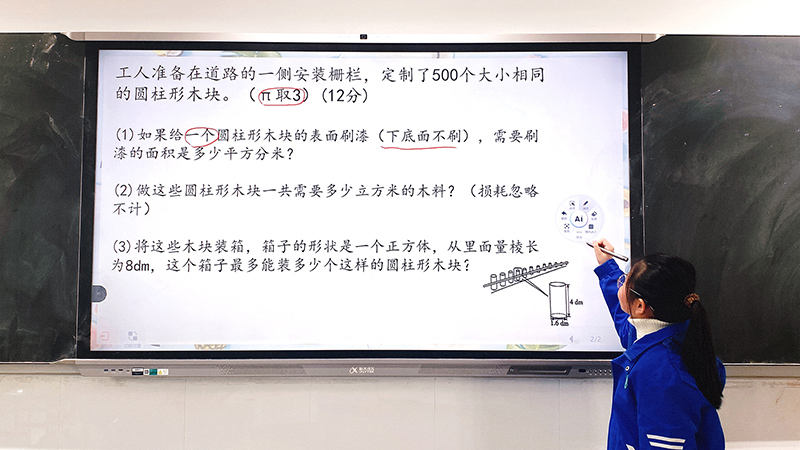 工人准备在道路的一侧安装栅栏，定制了500个大小相同
的圆柱形木块。（π取3）(12分)
(1)如果给一个圆柱形木块的表面刷漆（下底面不刷），需要刷
漆的面积是多少平方分米？
(2)做这些圆柱形木块一共需要多少立方米的木料？（损耗忽略
不计）
Ai
(3)将这些木块装箱，箱子的形状是一个正方体，从里面量棱长
为8dm，这个箱子最多能装多少个这样的圆柱形木块？
4 dm
1.6 dm
2/2